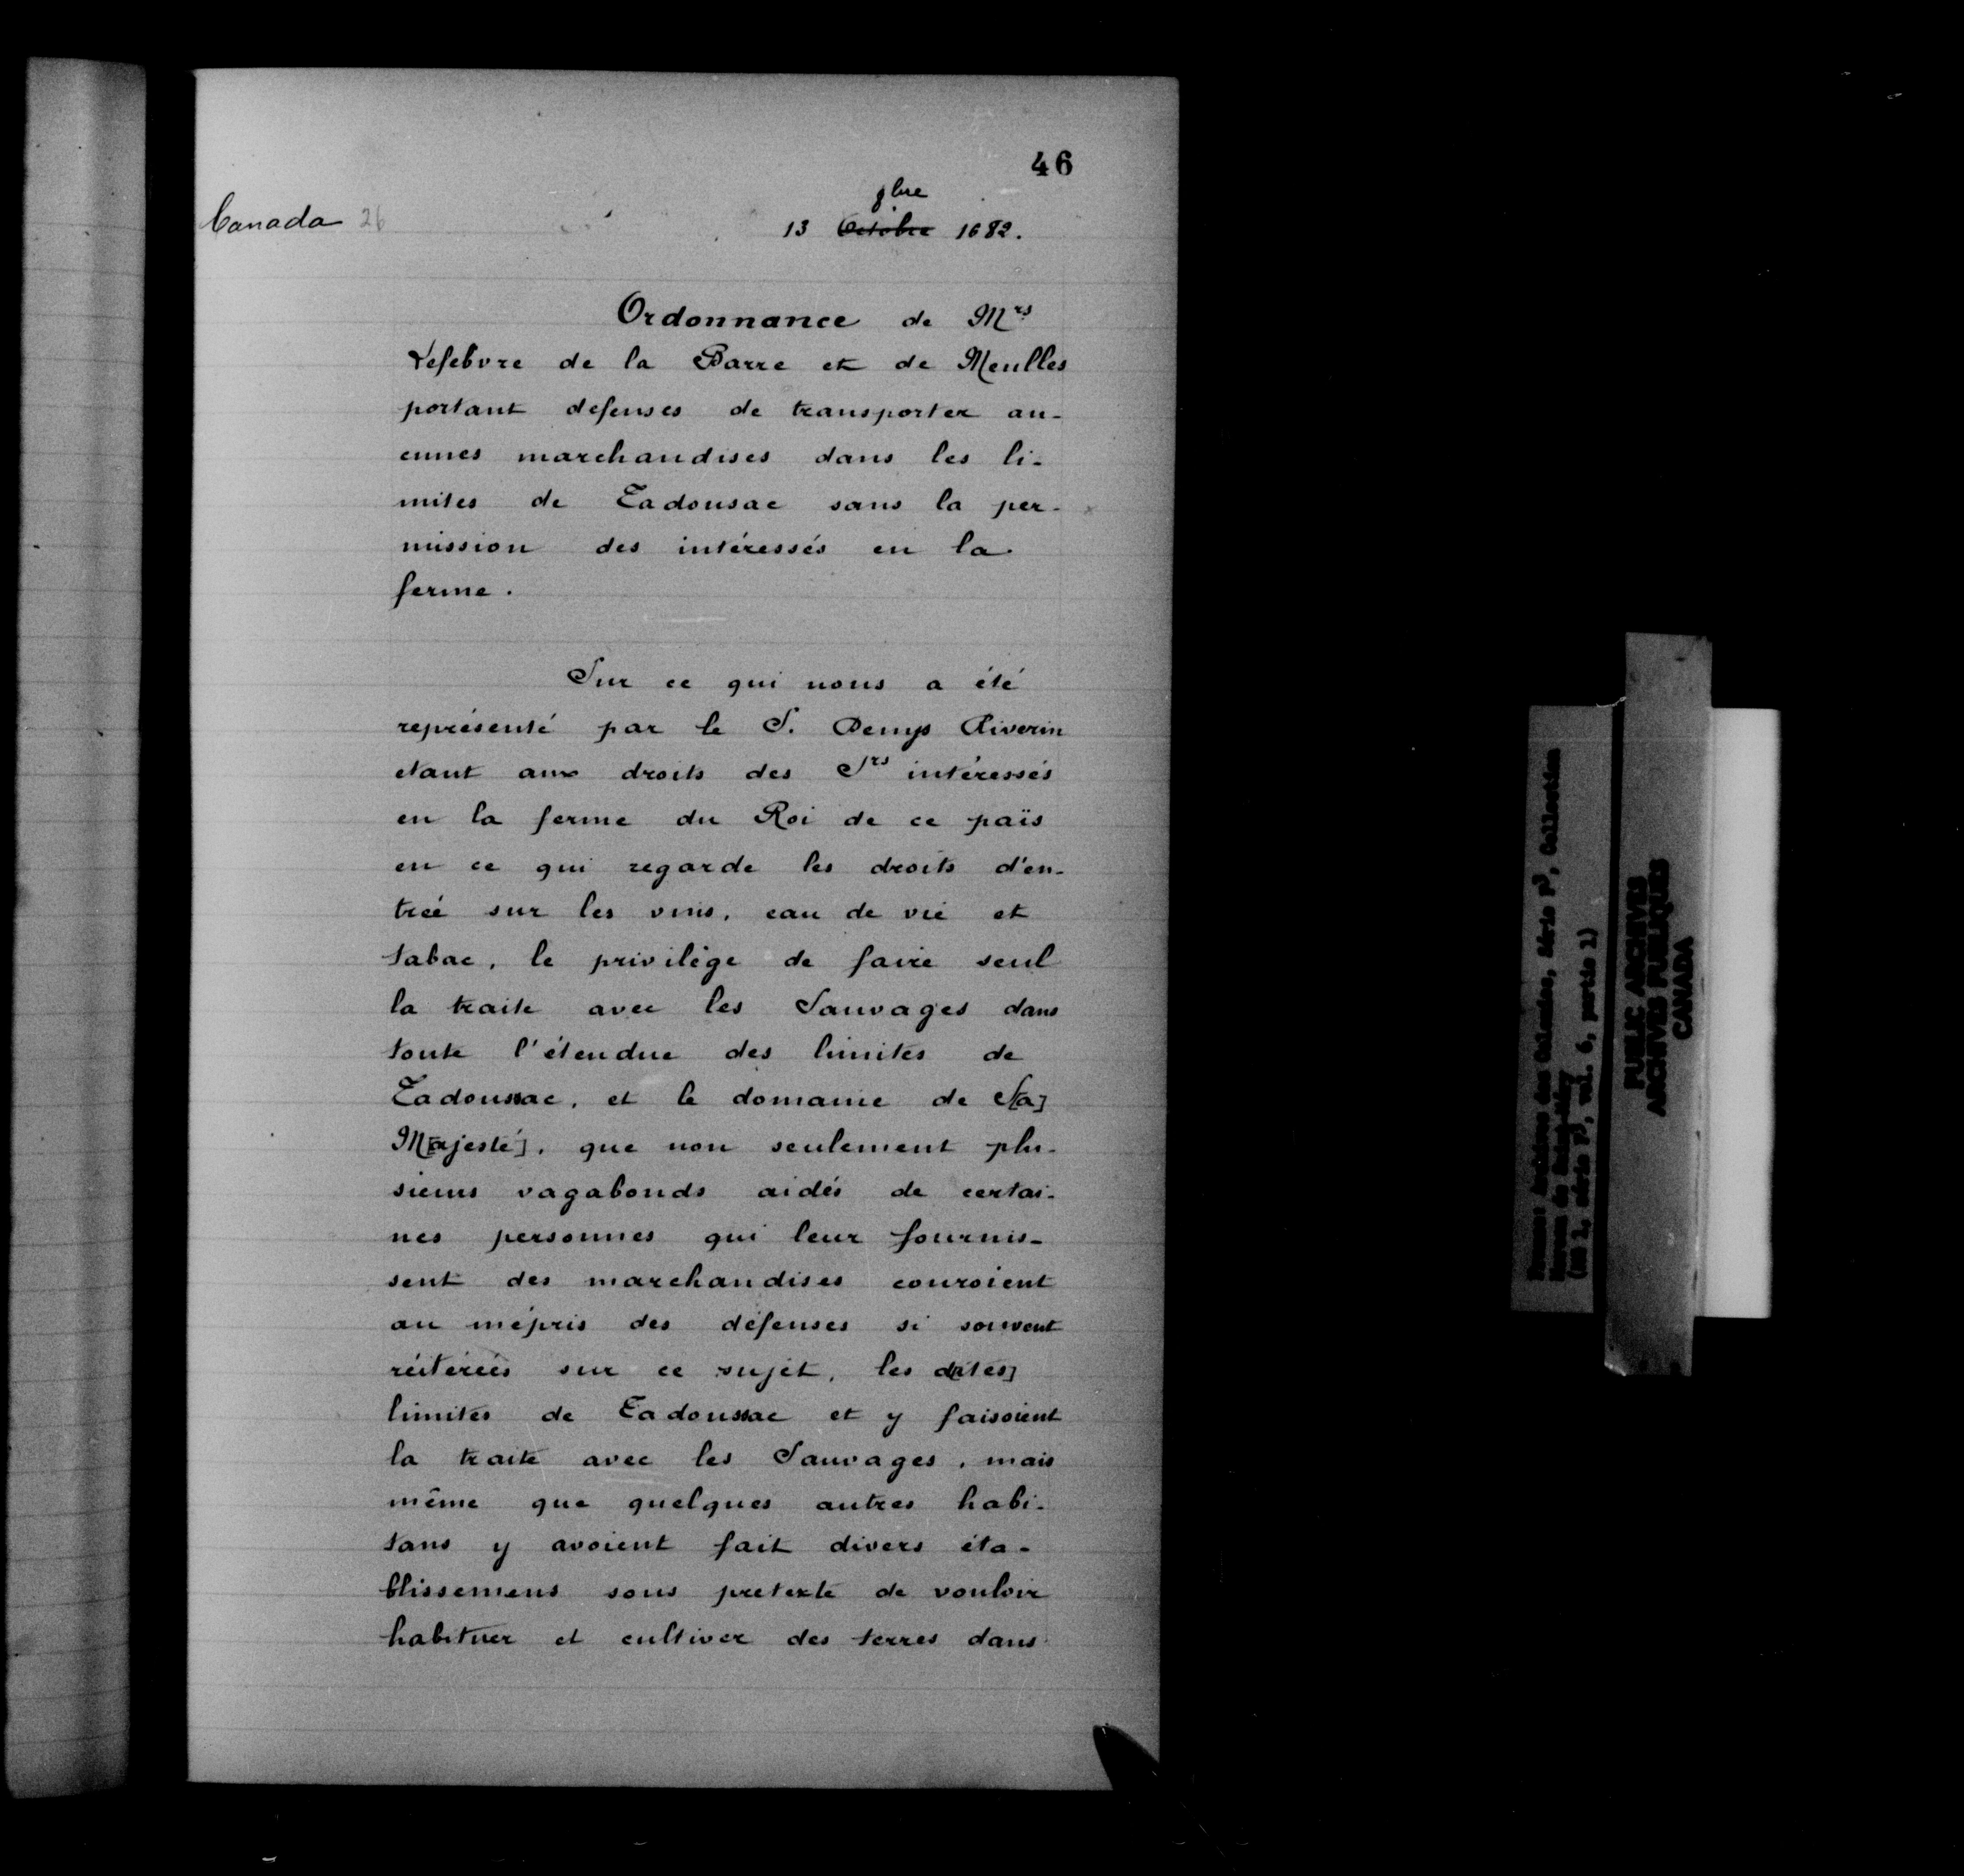 46
Canada 26
8bre
13 Octobre 1682.
Ordonnance de Mrs
Lefebvre de la Barre et de Meulles
portant defenses de transporter au-
cunes marchandises dans les li-
mites de Tadousac sans la per-
mission des intéressés en la
ferme.
Sur ce qui nous a été
représenté par le S. Denys Riverin
etant aux droits des Srs intéressés
en la ferme du Roi de ce païs
en ce qui regarde les droits d'en-
treé sur les vins, eau de vie et
tabac, le privilège de faire seul
la traite avec les Sauvages dans
toute l'étendue des limites de
Tadoussac, et le domaine de S[a]
M[ajesté], que non seulement plu-
sieurs vagabonds aidés de certai-
nes personnes qui leur fournis-
sent des marchandises couroient
au mépris des défenses si souvent
réiterées sur ce sujet, les d[ites]
limites de Tadoussac et y faisoient
la traite avec les Sauvages, mais
même que quelques autres habi-
tans y avoient fait divers éta-
blissemens sous pretexte de vouloir
habituer et cultiver des terres dans
France: Archives des Colonies, Série F3, Collection
Moreau de Saint-Méry
(MG 1, série F3, vol. 6, partie 1)
PUBLIC ARCHIVES
ARCHIVES PUBLIQUES
CANADA